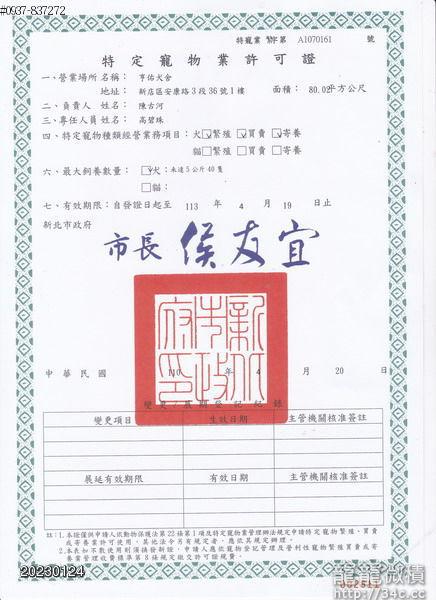 #0937-837272
特寵業 繁字第 A1070161 號
特定寵物業許可證
一、營業場所名稱： 亨佑犬舍
地址： 新店區安康路3段36號1樓 面積： 80.02平方公尺
二、負責人 姓名： 陳古河
三、專任人員姓名： 高碧珠
四、特定寵物種類經營業務項目：犬☑繁殖 ☑買賣 ☑寄養
貓□繁殖 □買賣 □寄養
六、最大飼養數量： ☑犬：未達5公斤40隻
□貓：
七、有效期限：自發證日起至 113 年 4 月 19 日止
新北市政府
市長 侯友宜
新北市政府印
中華民國 110 年 4 月 20 日
變更/展期登記紀錄
變更項目 生效日期 主管機關核准簽註
展延有效期限 有效日期 主管機關核准簽註
註：1.本證僅供申請人依動物保護法第22條第1項及特定寵物業管理辦法規定申請特定寵物繁殖、買賣
或寄養業許可使用，其他法令另有規定者，應依其規定辦理。
2.本表如不敷使用則須換發新證，申請人應依寵物登記管理及營利性寵物繁殖買賣或寄
養業管理收費標準第8條規定繳交許可證規費。
20230124
002511
龍龍微積
http://34c.cc